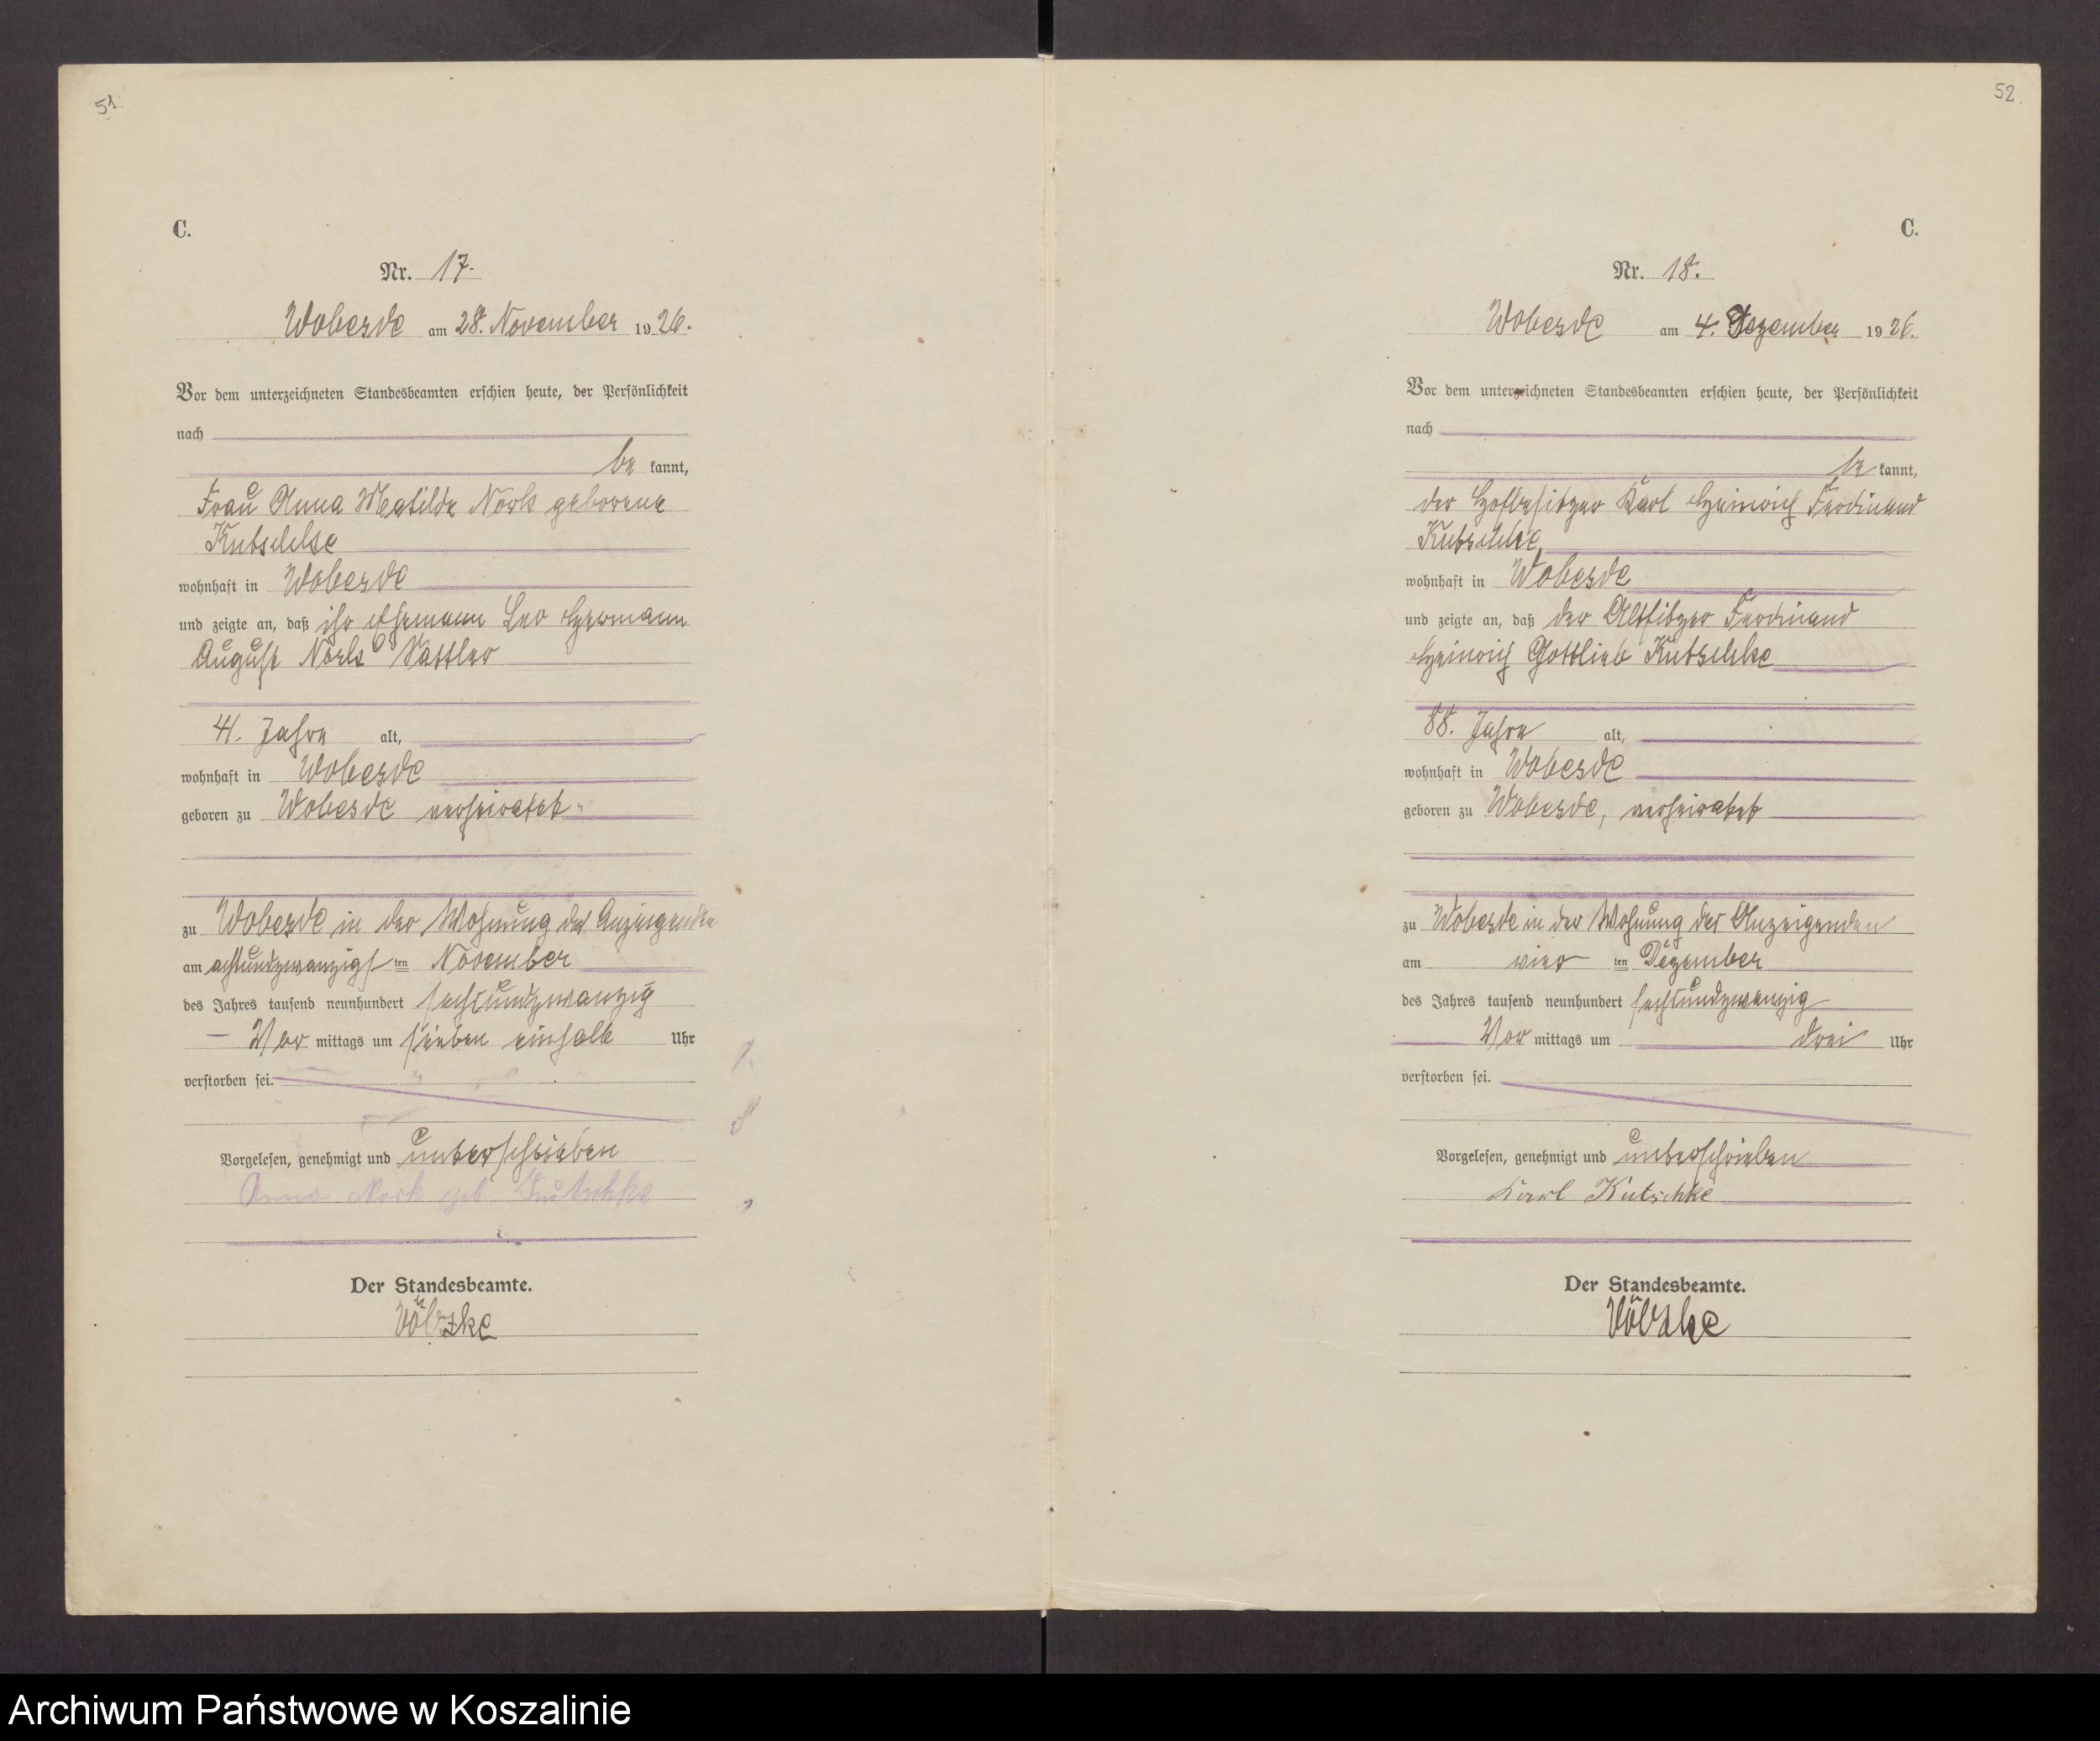 51.
C.
Nr. 17.
Woberde am 28. November 1926.
Vor dem unterzeichneten Standesbeamten erschien heute, der Persönlichkeit
nach
be kannt,
Frau Anna Matilde Nork geborene
Kutschke
wohnhaft in Woberde
und zeigte an, daß ihr Ehemann Leo Hermann
August Nork Sattler
41. Jahre alt,
wohnhaft in Woberde
geboren zu Woberde verheiratet
zu Woberde in der Wohnung der Anzeigenden
am achtundzwanzigsten November
des Jahres tausend neunhundert sechsundzwanzig
Vor mittags um sieben einhalb Uhr
verstorben sei.
Vorgelesen, genehmigt und unterschrieben
Anna Nork geb Kutschke
Der Standesbeamte.
Völzke
52
C.
Nr. 18.
Woberde am 4. Dezember 1926.
Vor dem unterzeichneten Standesbeamten erschien heute, der Persönlichkeit
nach
be kannt,
der Hofbesitzer Karl Heinrich Ferdinand
Kutschke
wohnhaft in Woberde
und zeigte an, daß der Altsitzer Ferdinand
Heinrich Gottlieb Kutschke
88. Jahre alt,
wohnhaft in Woberde
geboren zu Woberde, verheiratet
zu Woberde in der Wohnung des Anzeigenden
am vier ten Dezember
des Jahres tausend neunhundert sechsundzwanzig
Vor mittags um drei Uhr
verstorben sei.
Vorgelesen, genehmigt und unterschrieben
Karl Kutschke
Der Standesbeamte.
Völzke
Archiwum Państwowe w Koszalinie